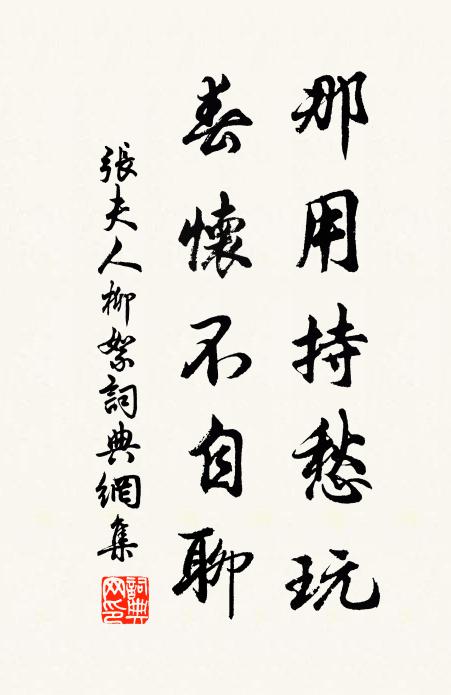 那用持愁玩
春懷不自聊
張夫人柳絮詞典網集
詞典網印